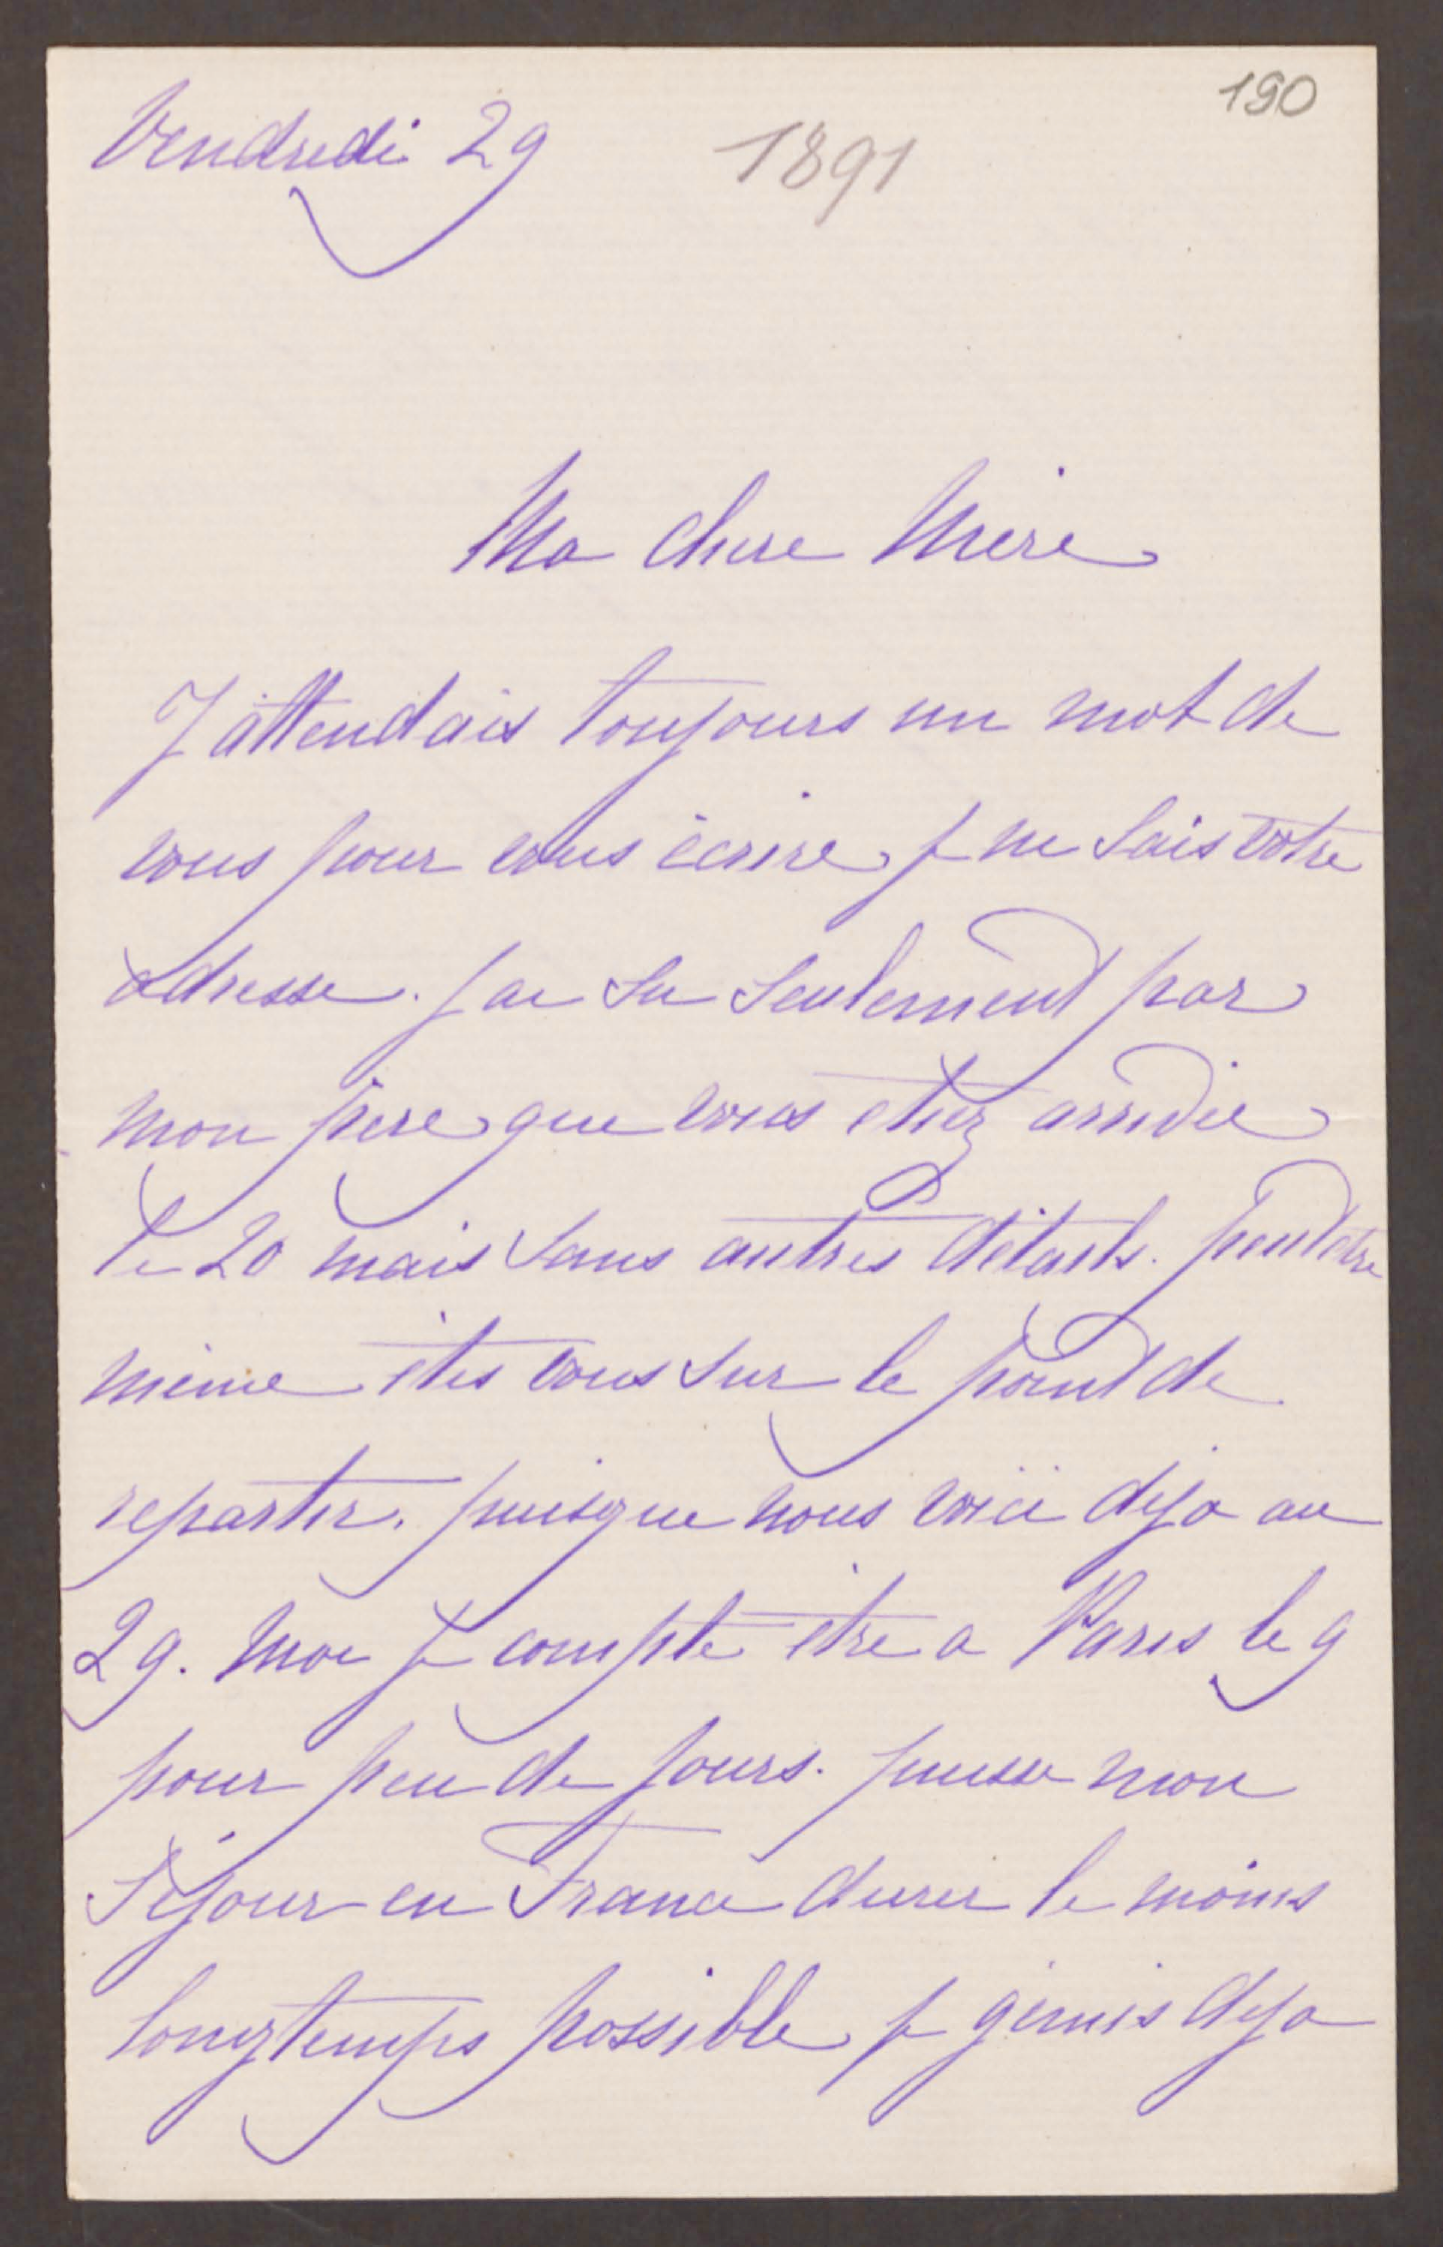 190
Vendredi 29
1891
Ma chere Mère
J'attendais toujours un mot de
vous pour vous écrire, je ne sais votre
adresse. j'ai su seulement par
mon père que vous etiez arrivée
le 20 mais sans autres détails. peut etre
même êtes vous sur le point de
repartir. puisque nous voici déja au
29. Moi je compte être a Paris le 9
pour peu de jours. puisse mon
Séjour en France durer le moins
longtemps possible, je gémis deja